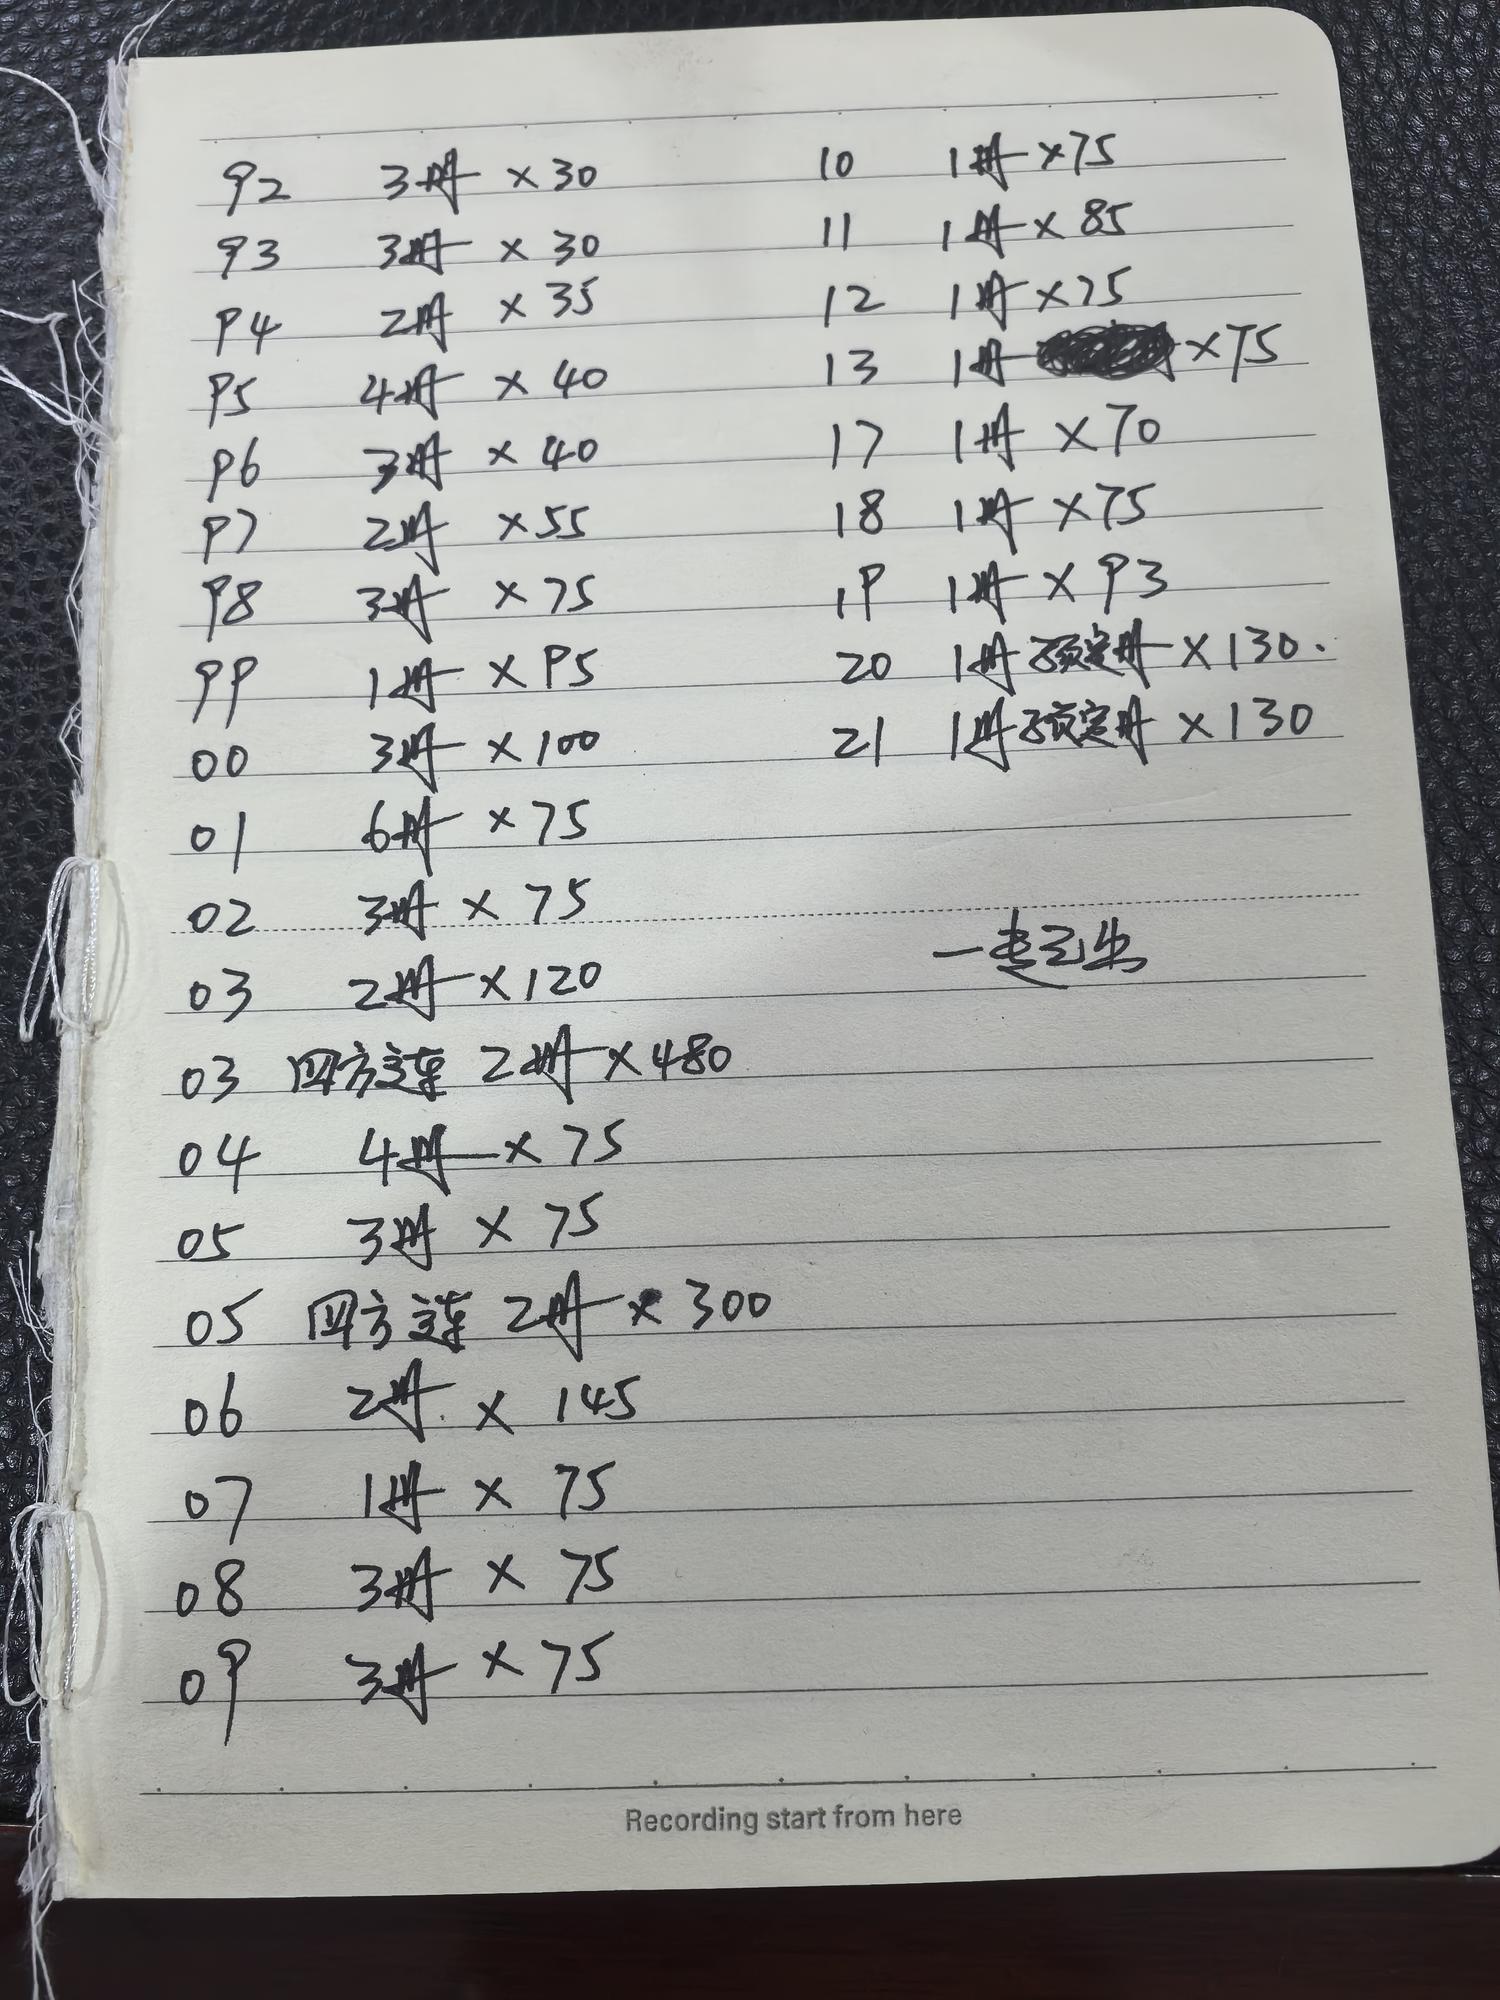 92 3册 ×30
93 3册 × 30
94 2册 × 35
95 4册 × 40
96 3册 × 40
97 2册 ×55
98 3册 ×75
99 1册 × 95
00 3册 ×100
01 6册 ×75
02 3册 × 75
03 2册 ×120
03 四方连 2册 ×480
04 4册 × 75
05 3册 × 75
05 四方连 2册 × 300
06 2册 × 145
07 1册 × 75
08 3册 × 75
09 3册 × 75
10 1册 ×75
11 1册 × 85
12 1册 ×75
13 1册 ×75
17 1册 ×70
18 1册 ×75
19 1册 × 93
20 1册 预定册 ×130.
21 1册 预定册 ×130
一走已出
Recording start from here